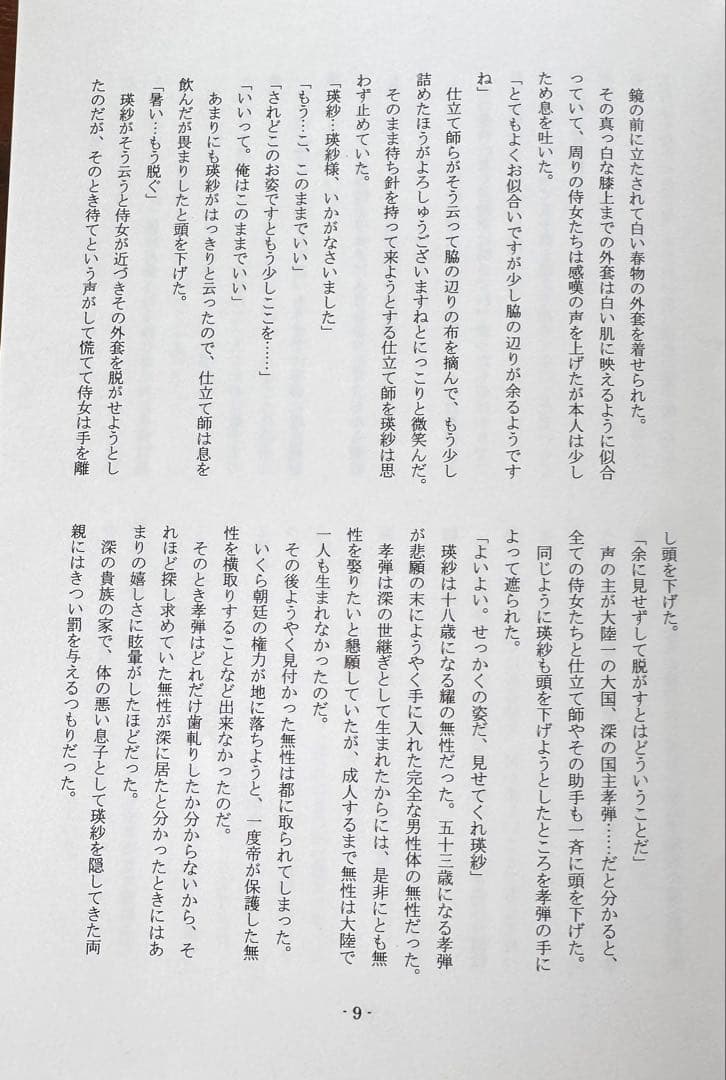 鏡の前に立たされて白い春物の外套を着せられた。
その真っ白な膝上までの外套は白い肌に映えるように似合
っていて、周りの侍女たちは感嘆の声を上げたが本人は少し
ため息を吐いた。
「とてもよくお似合いですが少し脇の辺りが余るようです
ね」
仕立て師らがそう云って脇の辺りの布を摘んで、もう少し
詰めたほうがよろしゅうございますねとにっこりと微笑んだ。
そのまま待ち針を持って来ようとする仕立て師を瑛紗は思
わず止めていた。
「瑛紗…瑛紗様、いかがなさいました」
「もう…こ、このままでいい」
「されどこのお姿ですともう少しここを……」
「いいって。俺はこのままでいい」
あまりにも瑛紗がはっきりと云ったので、仕立て師は息を
飲んだが畏まりしたと頭を下げた。
「暑い…もう脱ぐ」
瑛紗がそう云うと侍女が近づきその外套を脱がせようとし
たのだが、そのとき待てという声がして慌てて侍女は手を離
し頭を下げた。
「余に見せずして脱がすとはどういうことだ」
声の主が大陸一の大国、深の国主孝弾……だと分かると、
全ての侍女たちと仕立て師やその助手も一斉に頭を下げた。
同じように瑛紗も頭を下げようとしたところを孝弾の手に
よって遮られた。
「よいよい。せっかくの姿だ、見せてくれ瑛紗」
瑛紗は十八歳になる耀の無性だった。五十三歳になる孝弾
が悲願の末にようやく手に入れた完全な男性体の無性だった。
孝弾は深の世継ぎとして生まれたからには、是非にとも無
性を娶りたいと懇願していたが、成人するまで無性は大陸で
一人も生まれなかったのだ。
その後ようやく見付かった無性は都に取られてしまった。
いくら朝廷の権力が地に落ちようと、一度帝が保護した無
性を横取りすることなど出来なかったのだ。
そのとき孝弾はどれだけ歯軋りしたか分からないから、そ
れほど探し求めていた無性が深に居たと分かったときにはあ
まりの嬉しさに眩暈がしたほどだった。
深の貴族の家で、体の悪い息子として瑛紗を隠してきた両
親にはきつい罰を与えるつもりだった。
- 9 -